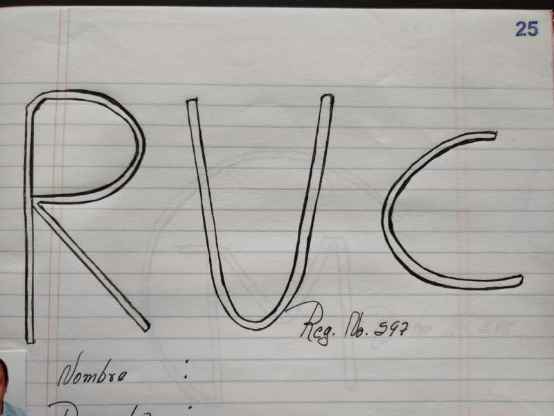 25
RUC
Reg. No. 597
Nombre :